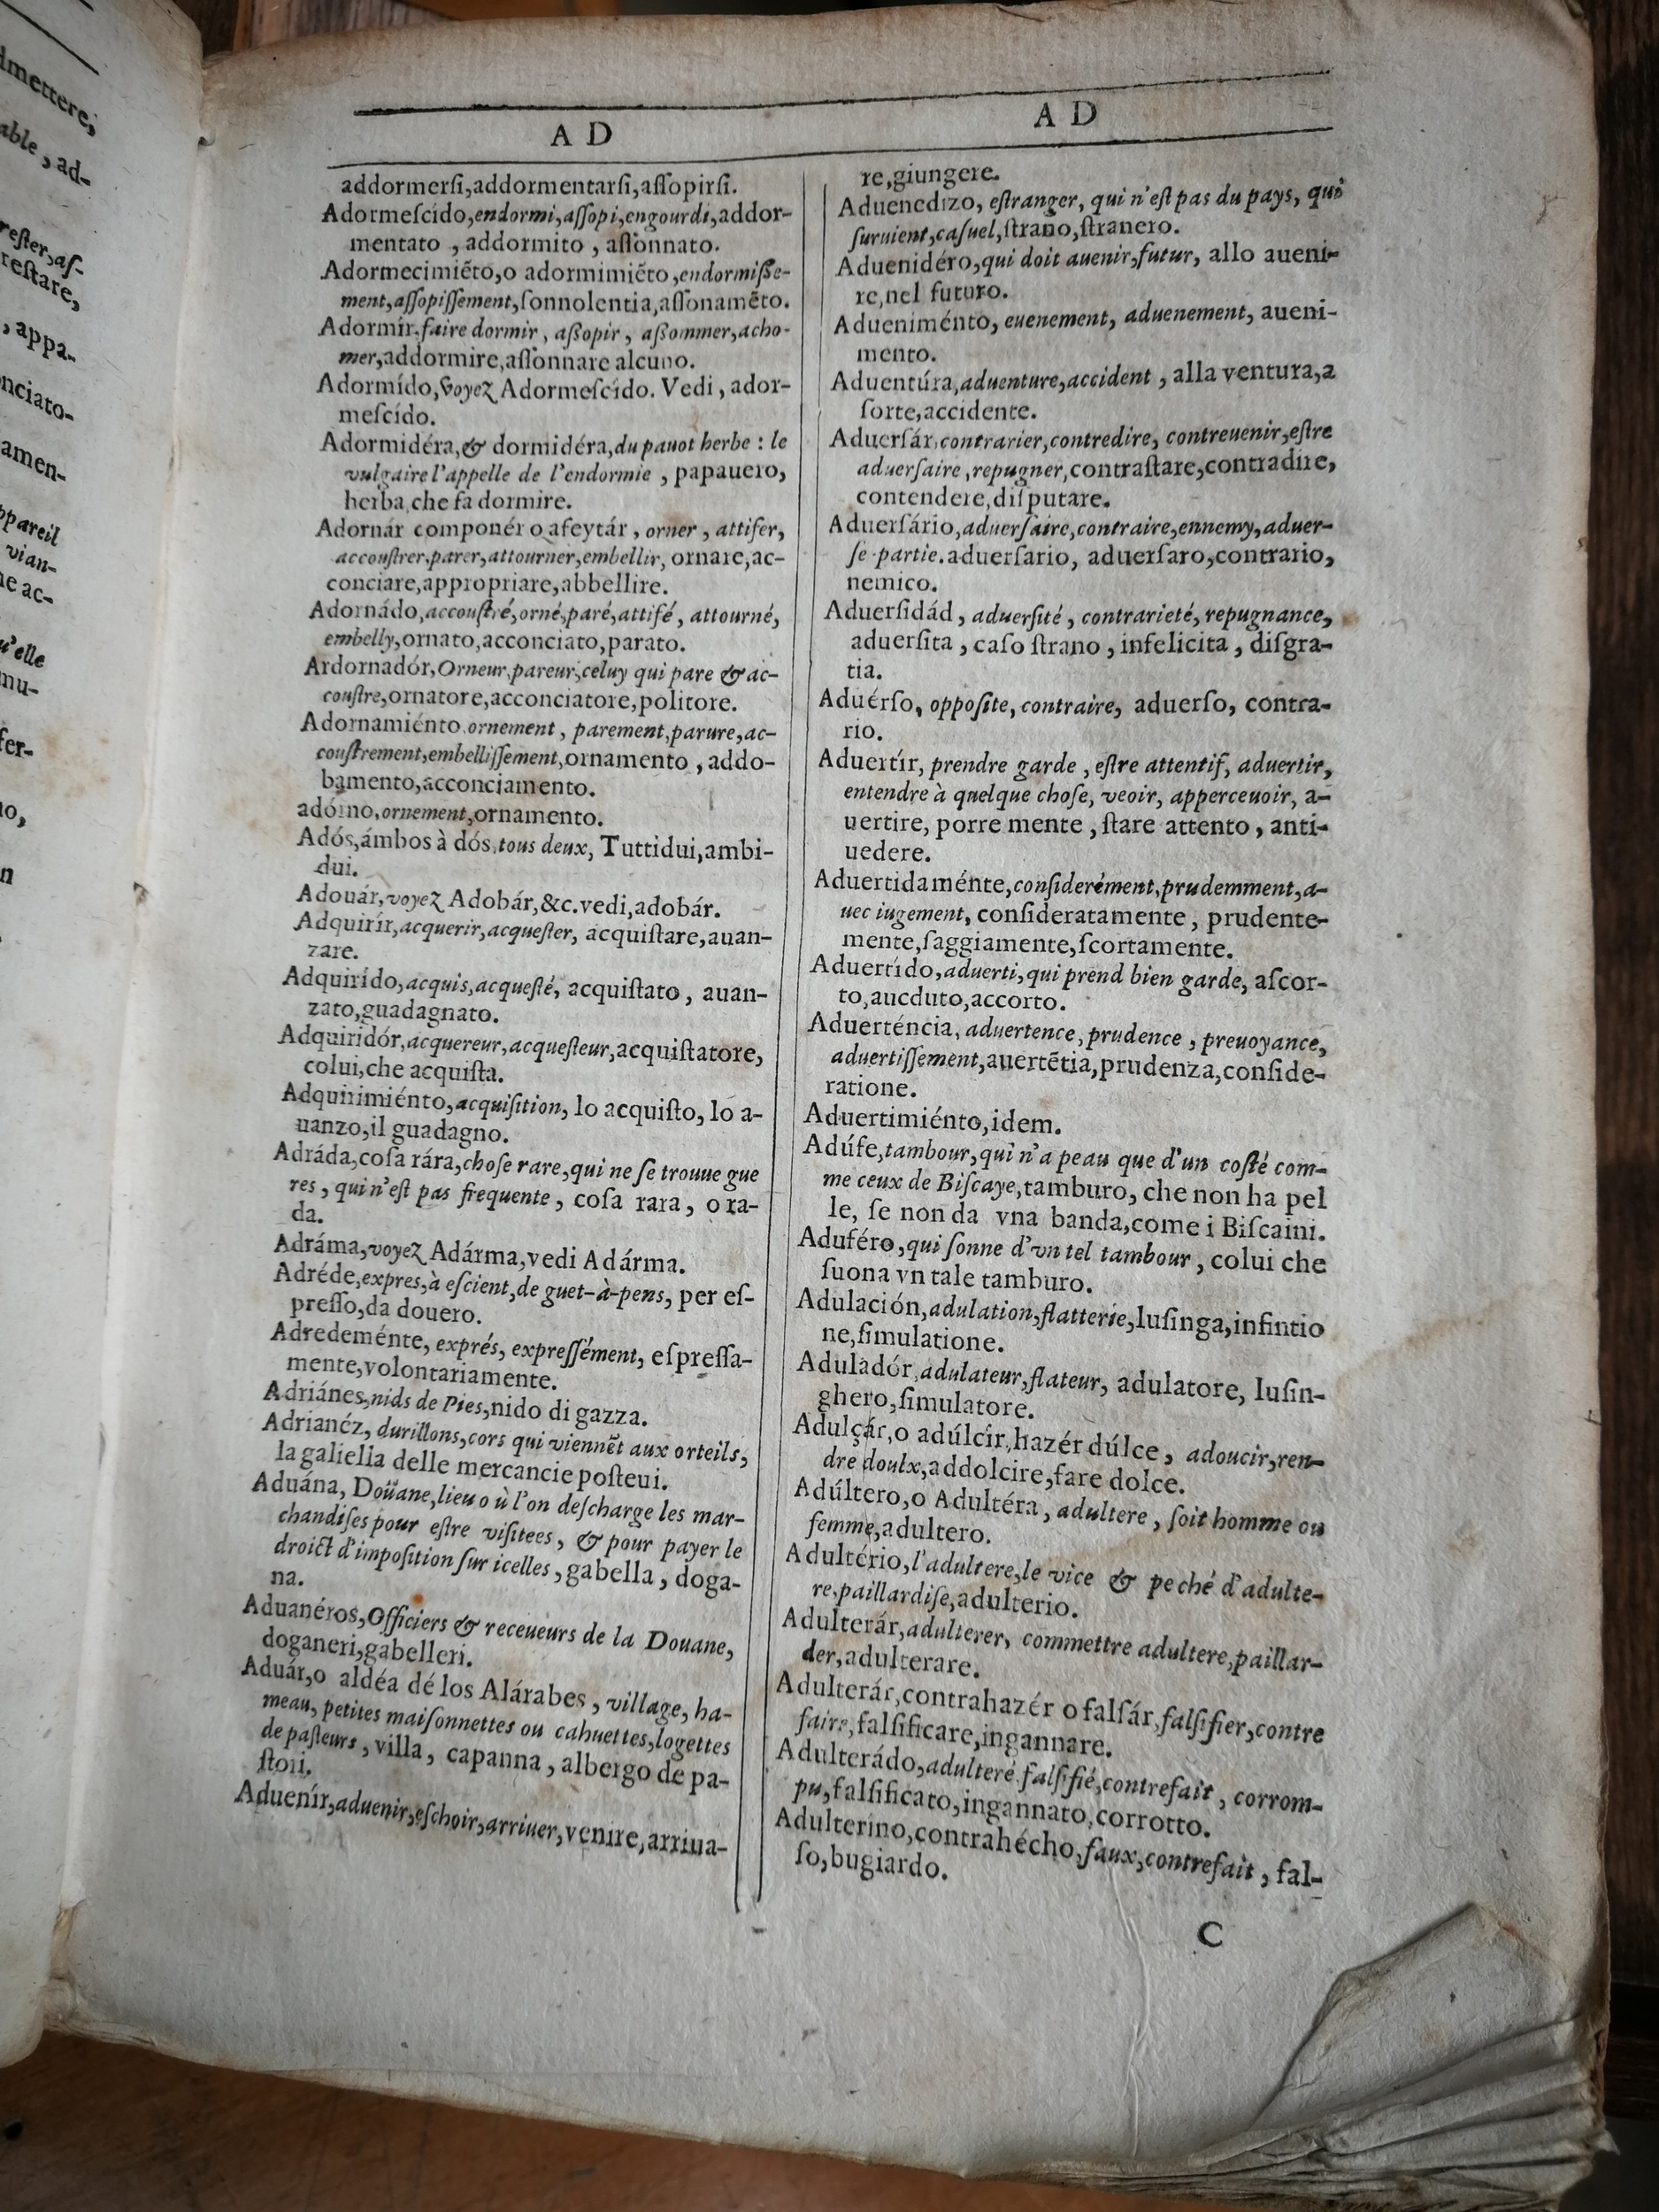 dmettere,
able, ad-
rester, as-
restare,
, appa-
nciato-
amen-
ppareil
vian-
ne ac-
u'elle
mu-
fer-
no,
n
A D
addormerſi,addormentarſi,aſſopirſi.
Adormeſcído,endormi,aſſopi,engourdi,addor-
mentato , addormito , aſſonnato.
Adormecimiẽto,o adormimiẽto,endormiſſe-
ment,aſſopiſſement,ſonnolentia,aſſonamẽto.
Adormír.faire dormir , aſſopir , aſſommer,acho-
mer,addormire,aſſonnare alcuno.
Adormído,voyez Adormeſcído. Vedi , ador-
meſcído.
Adormidéra,& dormidéra,du pauot herbe : le
vulgaire l'appelle de l'endormie , papauero,
herba,che fa dormire.
Adornár componér o afeytár , orner , attifer,
accouſtrer.parer,attourner,embellir, ornare,ac-
conciare,appropriare,abbellire.
Adornádo,accouſtré,orné,paré,attifé , attourné,
embelly,ornato,acconciato,parato.
Ardornadór,Orneur,pareur,celuy qui pare & ac-
couſtre,ornatore,acconciatore,politore.
Adornamiénto,ornement , parement,parure,ac-
couſtrement,embelliſſement,ornamento , addo-
bamento,acconciamento.
adórno,ornement,ornamento.
Adós,ámbos à dós,tous deux, Tuttidui,ambi-
dui.
Adouár,voyez Adobár,&c.vedi,adobár.
Adquirír,acquerir,acqueſter, acquiſtare,auan-
zare.
Adquirído,acquis,acqueſté, acquiſtato , auan-
zato,guadagnato.
Adquiridór,acquereur,acqueſteur,acquiſtatore,
colui,che acquiſta.
Adquirimiénto,acquiſition, lo acquiſto, lo a-
uanzo,il guadagno.
Adráda,coſa rára,choſe rare,qui ne ſe trouue gue
res , qui n'eſt pas frequente , coſa rara , o ra-
da.
Adráma,voyez Adárma,vedi Adárma.
Adréde,expres,à eſcient,de guet-à-pens, per eſ-
preſſo,da douero.
Adredeménte, exprés, expreſſément, eſpreſſa-
mente,volontariamente.
Adriánes,nids de Pies,nido di gazza.
Adrianéz, durillons,cors qui viennẽt aux orteils,
la galiella delle mercancie poſteui.
Aduána, Doüane,lieu o ù l'on deſcharge les mar-
chandiſes pour eſtre viſitees, & pour payer le
droict d'impoſition ſur icelles , gabella , doga-
na.
Aduanéros,Officiers & receueurs de la Douane,
doganeri,gabelleri.
Aduár,o aldéa dé los Alárabes , village, ha-
meau, petites maiſonnettes ou cahuettes,logettes
de paſteurs , villa, capanna , albergo de pa-
ſtori.
Aduenír,aduenir,eſchoir,arriuer,venire,arriua-
A D
re,giungere.
Aduenedizo, eſtranger, qui n'eſt pas du pays, qui
ſuruient,caſuel,ſtrano,ſtranero.
Aduenidéro,qui doit auenir,futur, allo aueni-
re,nel futuro.
Adueniménto, euenement, aduenement, aueni-
mento.
Aduentúra,aduenture,accident , alla ventura,a
ſorte,accidente.
Aduerſár,contrarier,contredire, contreuenir,eſtre
aduerſaire,repugner,contraſtare,contradire,
contendere,diſputare.
Aduerſário,aduerſaire,contraire,ennemy,aduer-
ſe partie.aduerſario, aduerſaro,contrario,
nemico.
Aduerſidád , aduerſité , contrarieté,repugnance,
aduerſita , caſo ſtrano , infelicita , diſgra-
tia.
Aduérſo, oppoſite, contraire, aduerſo, contra-
rio.
Aduertír, prendre garde , eſtre attentif, aduertir,
entendre à quelque choſe, veoir, apperceuoir, a-
uertire, porre mente , ſtare attento , anti-
uedere.
Aduertidaménte,conſiderément,prudemment,a-
uec iugement, conſideratamente , prudente-
mente,ſaggiamente,ſcortamente.
Aduertído,aduerti,qui prend bien garde, aſcor-
to,aueduto,accorto.
Aduerténcia, aduertence,prudence , preuoyance,
aduertiſſement,auertẽtia,prudenza,conſide-
ratione.
Aduertimiénto,idem.
Adúfe,tambour,qui n'a peau que d'un coſté com-
me ceux de Biſcaye,tamburo, che non ha pel
le, ſe non da vna banda,come i Biſcaini.
Aduféro,qui ſonne d'vn tel tambour , colui che
ſuona vn tale tamburo.
Adulación,adulation,flatterie,luſinga,infintio
ne,ſimulatione.
Aduladór,adulateur,flateur, adulatore, luſin-
ghero,ſimulatore.
Adulçár,o adúlcir,hazér dúlce , adoucir,ren-
dre doulx,addolcire,fare dolce.
Adúltero,o Adultéra , adultere , ſoit homme ou
femme,adultero.
Adultério,l'adultere,le vice & peché d'adulte-
re.paillardiſe,adulterio.
Adulterár,adulterer, commettre adultere,paillar-
der,adulterare.
Adulterár,contrahazér o falſár,falſifier,contre
faire,falſificare,ingannare.
Adulterádo,adulteré.falſifié,contrefait , corrom-
pu,falſificato,ingannato,corrotto.
Adulterino,contrahécho,faux,contrefait , fal-
ſo,bugiardo.
C